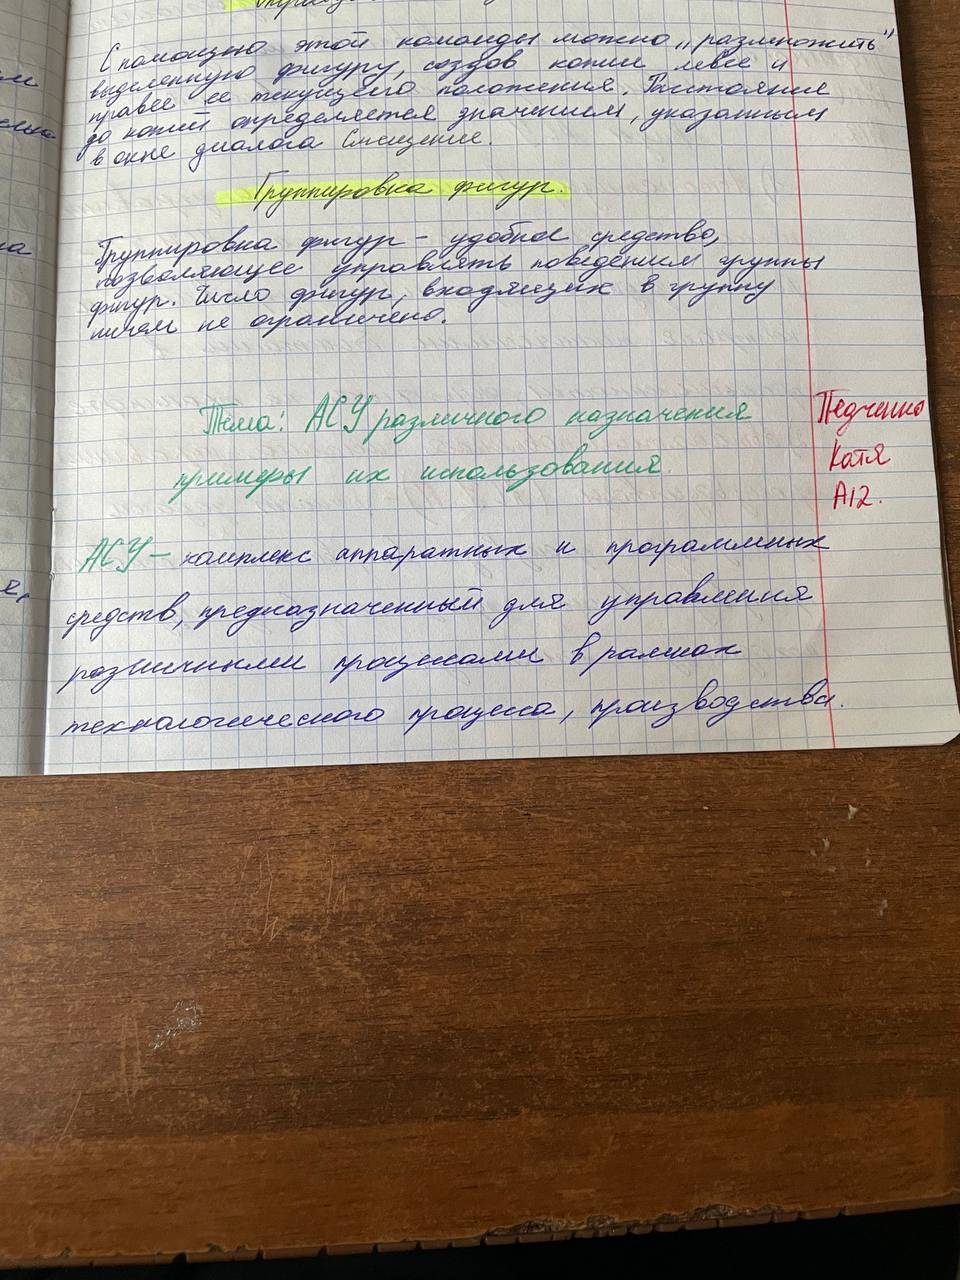 С помощью этой команды можно „размножить"
выделенную фигуру, создав копии левее и
правее ее текущего положения. Расстояние
до копий определяется значением, указанным
в окне диалога Смещение.
Группировка фигур.
Группировка фигур – удобное средство,
позволяющее управлять поведением группы
фигур. Число фигур, входящих в группу
ничем не ограничено.
Тема: АСУ различного назначения
примеры их использования
Педченко
Катя
А12.
АСУ – комплекс аппаратных и программных
средств, предназначенный для управления
различными процессами в рамках
технологического процесса, производства.